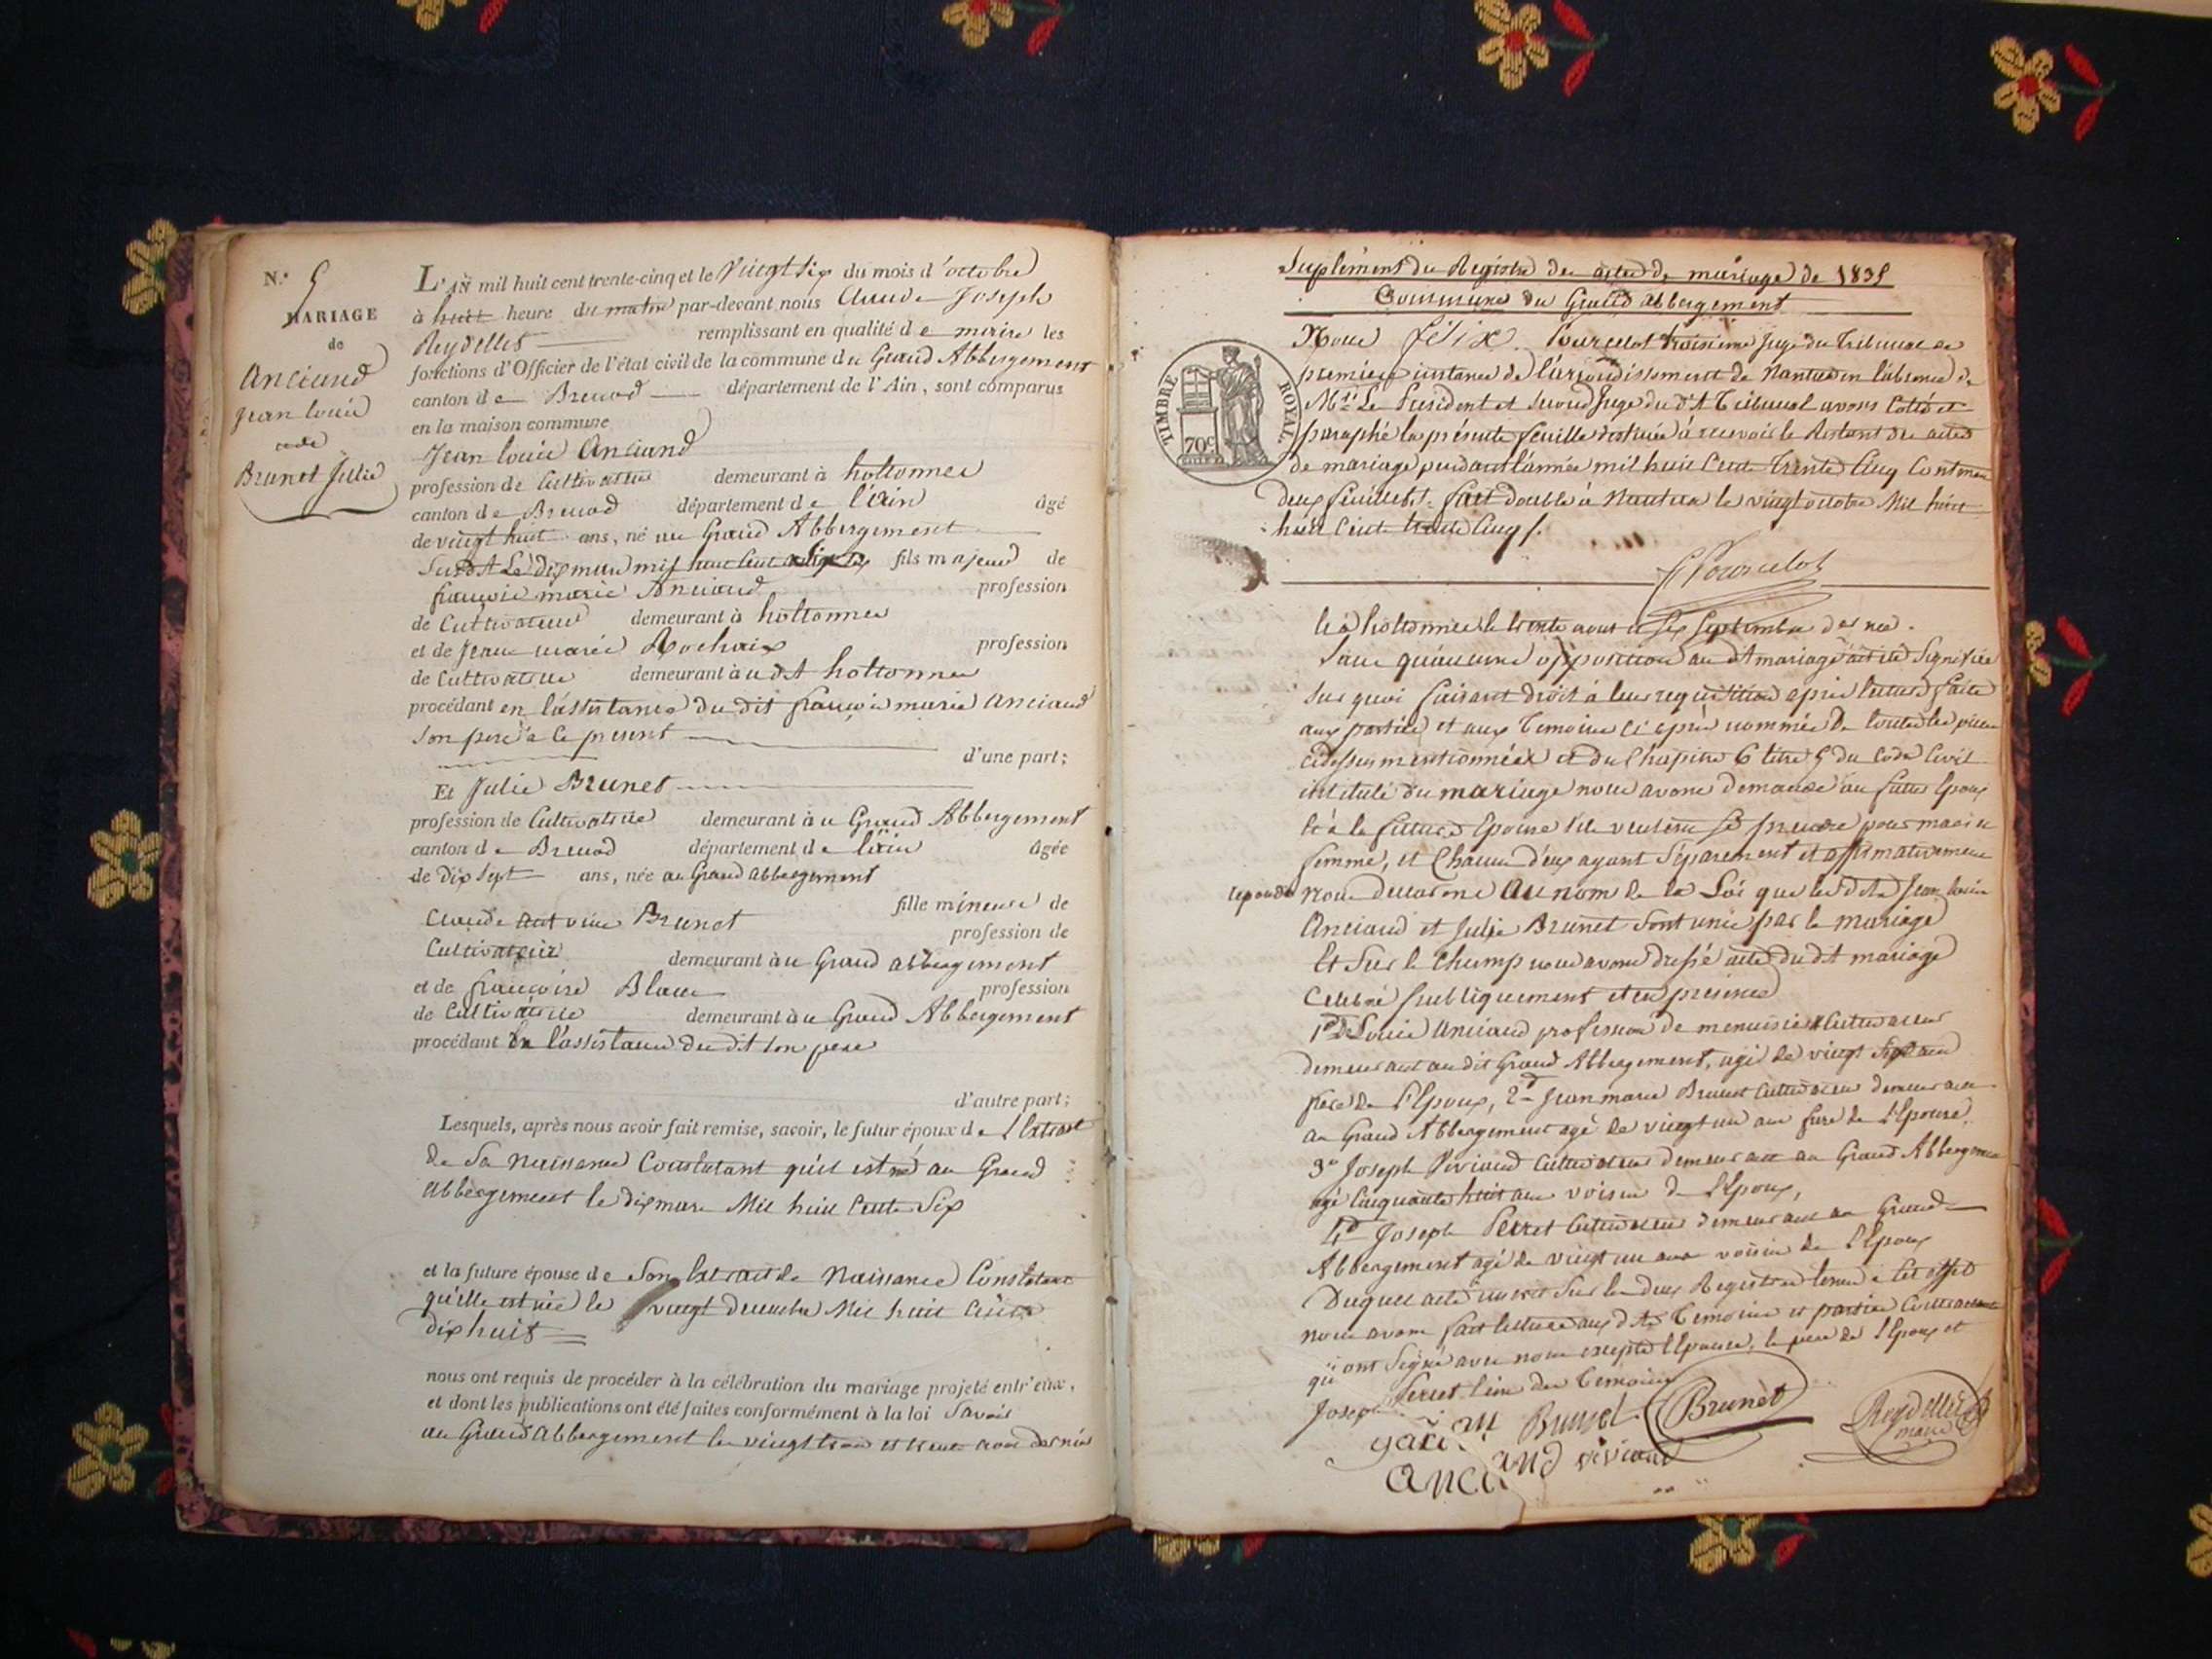 N.° 5
MARIAGE
de
Anciand
Jean Louis
avec
Brunet Julie
L'AN mil huit cent trente-cinq et le Vingt Six du mois d'octobre
à huit heure du matin par-devant nous Claude Joseph
Reydellet remplissant en qualité de maire les
fonctions d'Officier de l'état civil de la commune du Grand Abbergement
canton de Brenod département de l'Ain, sont comparus
en la maison commune
Jean Louis Anciand
profession de Cultivateur demeurant à hottonnes
canton de Brenod département de l'ain âgé
de vingt huit ans, né au Grand Abbergement
le dix mars mil huit cent six fils majeur de
françois marie Anciand profession
de Cultivateur demeurant à hottonnes
et de Jeanne marie Rochaix profession
de Cultivatrice demeurant au dt hottonnes
procédant en l'assistance du dit françois marie Anciand
Son pere à ce present
d'une part;
Et Julie Brunet
profession de Cultivatrice demeurant au Grand Abbergement
canton de Brenod département de l'ain âgée
de dix Sept ans, née au Grand abbergement
fille mineure de
Claude antoine Brunet profession de
Cultivateur demeurant au Grand abbergement
et de françoise Blanc profession
de Cultivatrice demeurant au Grand Abbergement
procédant En l'assistance du dit Son pere
d'autre part;
Lesquels, après nous avoir fait remise, savoir, le futur époux de l'Extrait
de Sa Naissance Constatant qu'il est né au Grand
abbergement le dix mars Mil huit Cents Six
et la future épouse de Son Extrait de Naissance Constatant
qu'elle est née le vingt decembre Mil huit Cents
dix huit
nous ont requis de procéder à la célébration du mariage projeté entr'eux,
et dont les publications ont été faites conformément à la loi Savoir
au Grand abbergement le vingt trois et trente aout dernier
Suplément du Registre des actes de mariage de 1835
Commune du Grand abbergement
TIMBRE ROYAL
70c
Nous Félix Pourcelot troisieme juge du Tribunal de
premiere instance de l'arrondissement de Nantua en l'absence de
Mrs Le President et Second juge du dt Tribunal avons Coté et
paraphé la présente feuille destinée à recevoir le Restant des actes
de mariage pendant l'année mil huit Cents Trente Cinq Contenant
deux feuillets. fait double à Nantua le vingt octobre Mil huit
huit Cents trente Cinq
Pourcelot
et à hottonnes le trente aout et Six Septembre dernier.
Sans qu'aucune opposition au dt mariage ait été Signifiée
Sur quoi faisant droit à leur requisition après lecture faite
aux parties et aux Temoins ci après nommés de toutes les pieces
cidessus mentionnées et du Chapitre 6 titre 5 du Code Civil
intitulé du mariage nous avons demandé au futur Epoux
et à la future Epouse S'ils veulent Se prendre pour mari et
femme, et Chacun d'eux ayant Séparement et affirmativement
repondu Nous declarons Au nom de la Loi que les dits Jean Louis
Anciand et Julie Brunet Sont unis par le mariage
Et Sur le Champ nous avons dressé acte du dt mariage
Celebré publiquement et en présence
1° de Louis Anciand profession de menuisier Cultivateur
demeurant au dit Grand Abbergement, agé de vingt Sept ans
frere de l'Epoux, 2° Jean marie Brunet Cultivateur demeurant
au Grand Abbergement agé de vingt un ans frere de l'Epouse.
3° Joseph Viviand Cultivateur demeurant au Grand Abbergement
agé Cinquante huit ans voisin de l'Epoux,
4° Joseph Perret Cultivateur demeurant au Grand
Abbergement agé de vingt un ans voisin de l'Epoux
Duquel acte inscrit Sur les deux Registres tenus à Cet effet
nous avons fait lecture aux dts Temoins et parties Contractantes
qui ont Signé avec nous excepté l'Epouse, le pere de l'Epoux et
Joseph Perret l'un des Temoins
Brunet Brunet Reydellet
maire
Anciand viviand